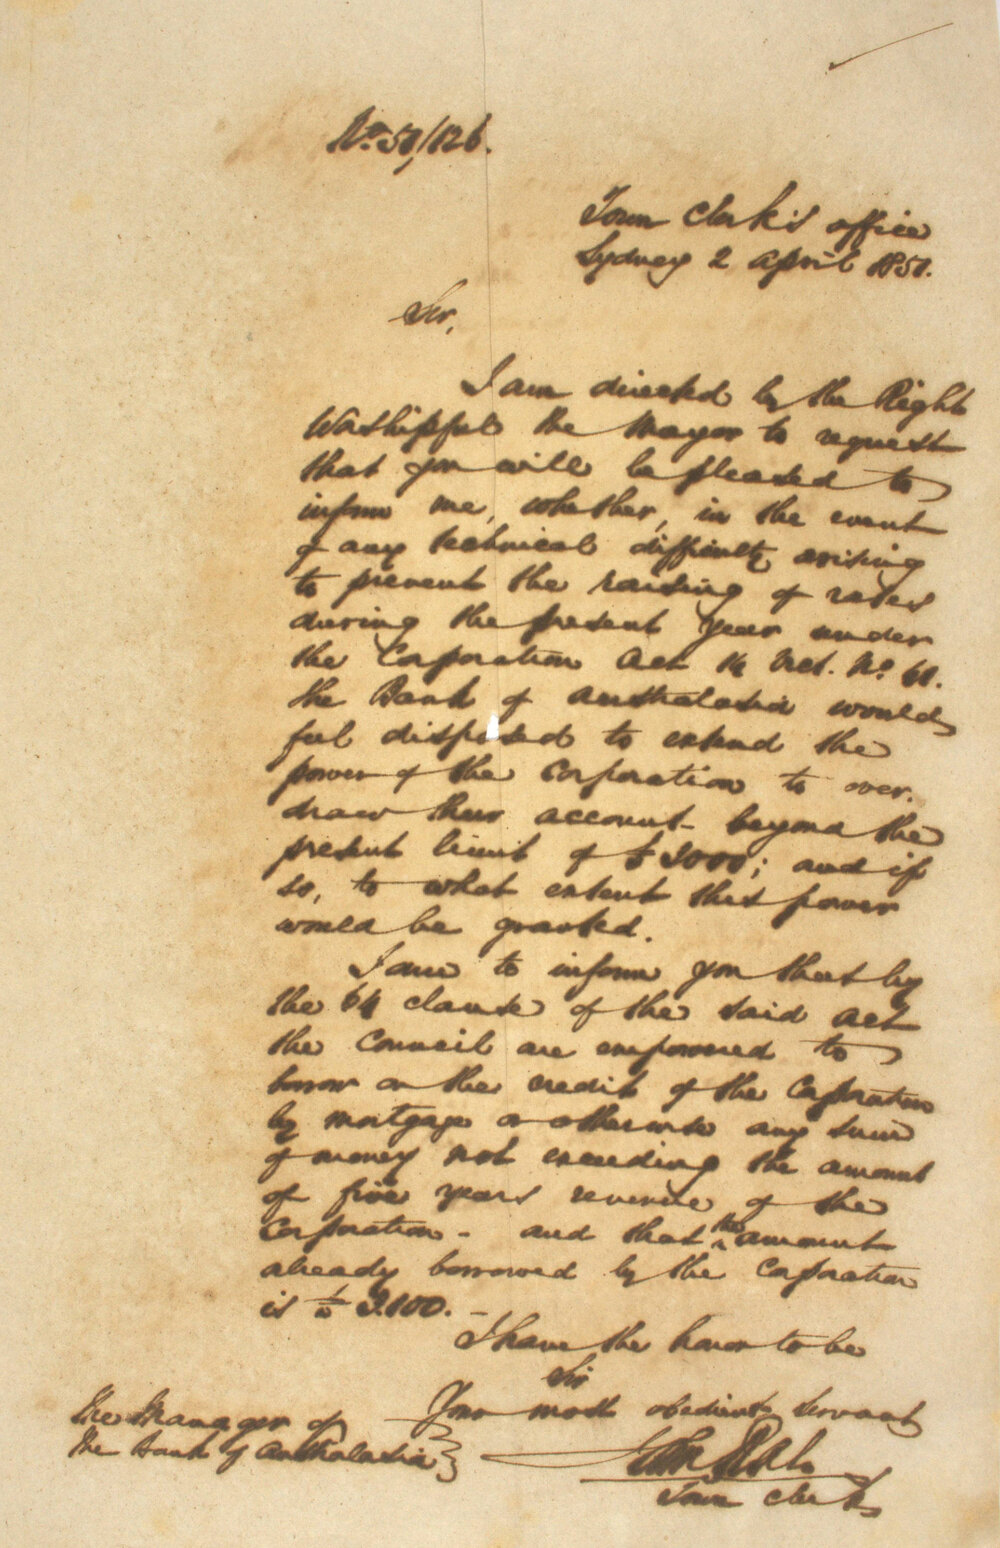 No. 51/126.
Town Clerk's office
Sydney 2 April 1851.
Sir,
I am directed by the Right
Worshipful the Mayor to request
that you will be pleased to
inform me, whether, in the event
of any technical difficulty arising
to prevent the raising of rates
during the present year under
the Corporation Act 14 Vict. No. 41.
the Bank of Australasia would
feel disposed to extend the
power of the Corporation to over.
draw their account beyond the
present limit of £ 3000; and if
so, to what extent this power
would be granted.
I am to inform you that by
the 64 clause of the said act
the Council are empowered to
borrow on the credit of the Corporation
by mortgage or otherwise any sum
of money not exceeding the amount
of five years revenue of the
Corporation - and that the amount
already borrowed by the Corporation
is £ 3.100. -
I have the honor to be
Sir
Your most obedient servant
The Manager of
the Bank of Australasia
John
Town Clerk